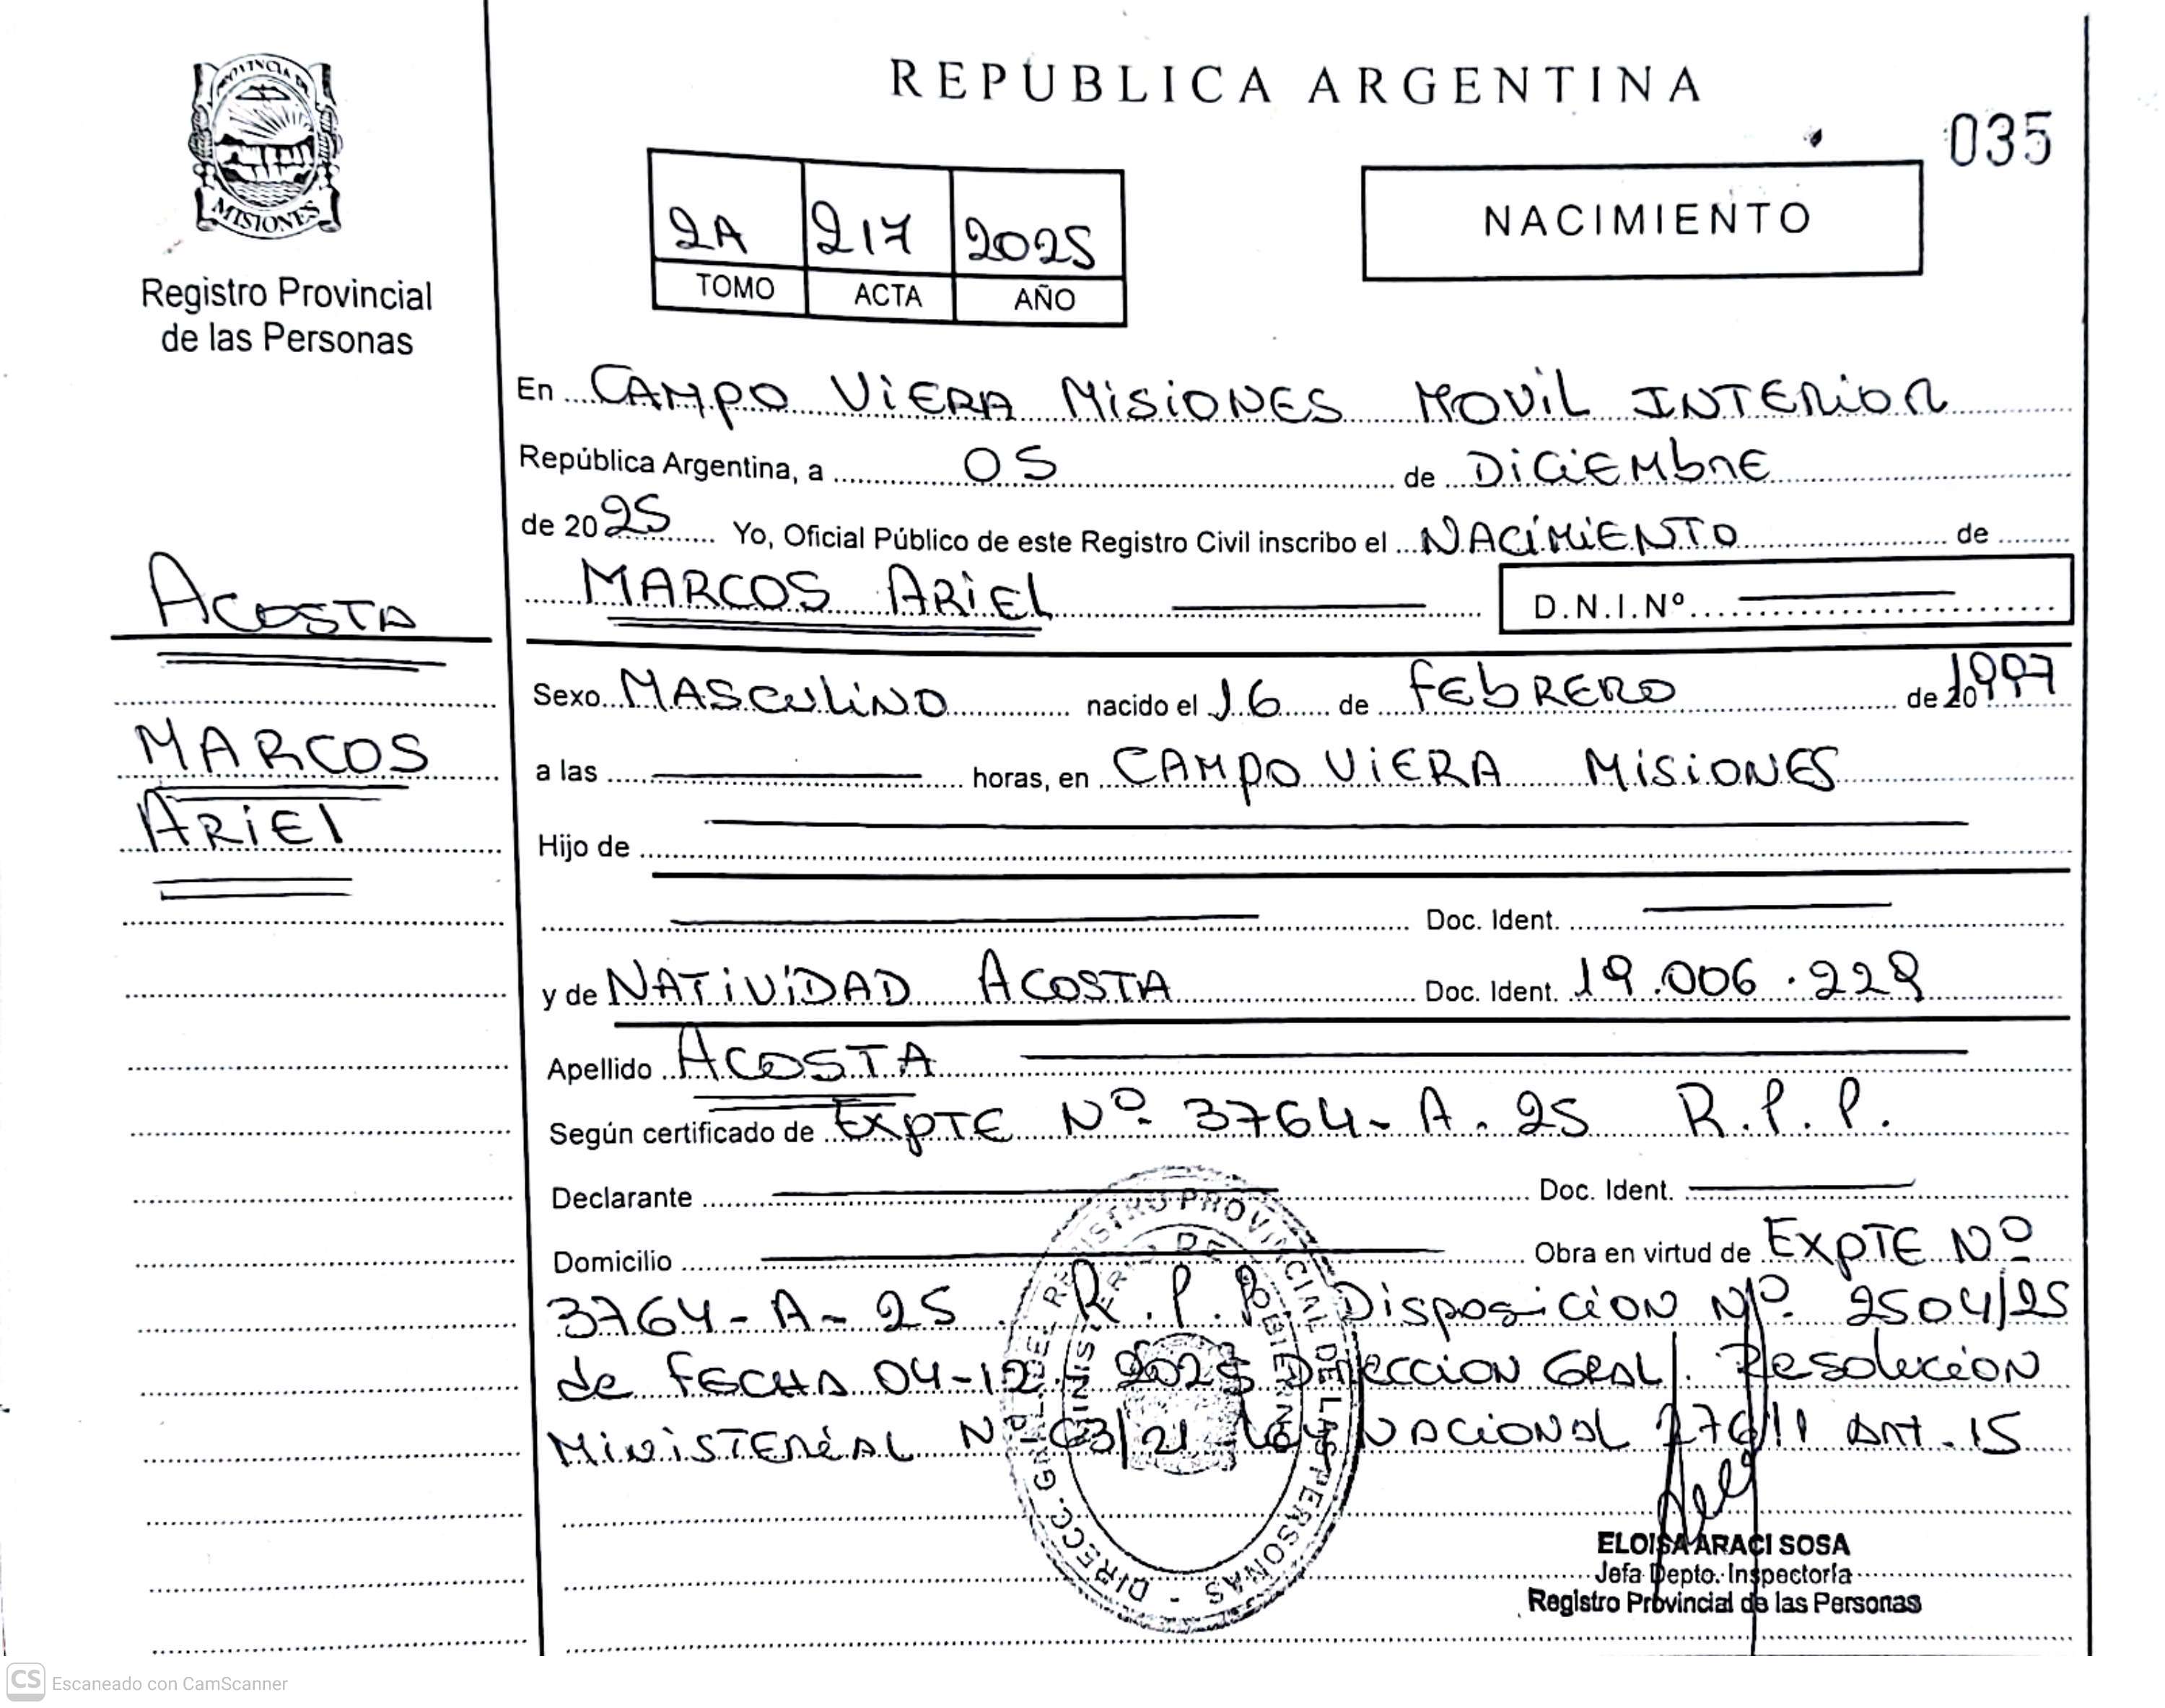 PROVINCIA DE
MISIONES
Registro Provincial
de las Personas
REPUBLICA ARGENTINA
035
2A 217 2025
TOMO ACTA AÑO
NACIMIENTO
En CAMPO VIERA MISIONES MOVIL INTERIOR
República Argentina, a 05 de DICIEMBRE
de 2025 Yo, Oficial Público de este Registro Civil inscribo el NACIMIENTO de
MARCOS ARIEL D.N.I.Nº
ACOSTA
MARCOS
ARIEL
Sexo MASCULINO nacido el 16 de FEBRERO de 1997
a las horas, en CAMPO VIERA MISIONES
Hijo de
Doc. Ident.
y de NATIVIDAD ACOSTA Doc. Ident. 19.006.229
Apellido ACOSTA
Según certificado de EXPTE Nº 3764-A-25 R.P.P.
Declarante Doc. Ident.
Domicilio Obra en virtud de EXPTE Nº
3764-A-25 R.P.P. Disposicion Nº 2504/25
de FECHA 04-12-2025 Direccion GRAL. Resolucion
MINISTERIAL Nº 63/21 Ley NACIONAL 27611 Art. 15
DIRECC. GRAL. DEL REGISTRO PROVINCIAL DE LAS PERSONAS
MINISTERIO DE GOBIERNO
ELOISA ARACI SOSA
Jefa Depto. Inspectoría
Registro Provincial de las Personas
CS Escaneado con CamScanner